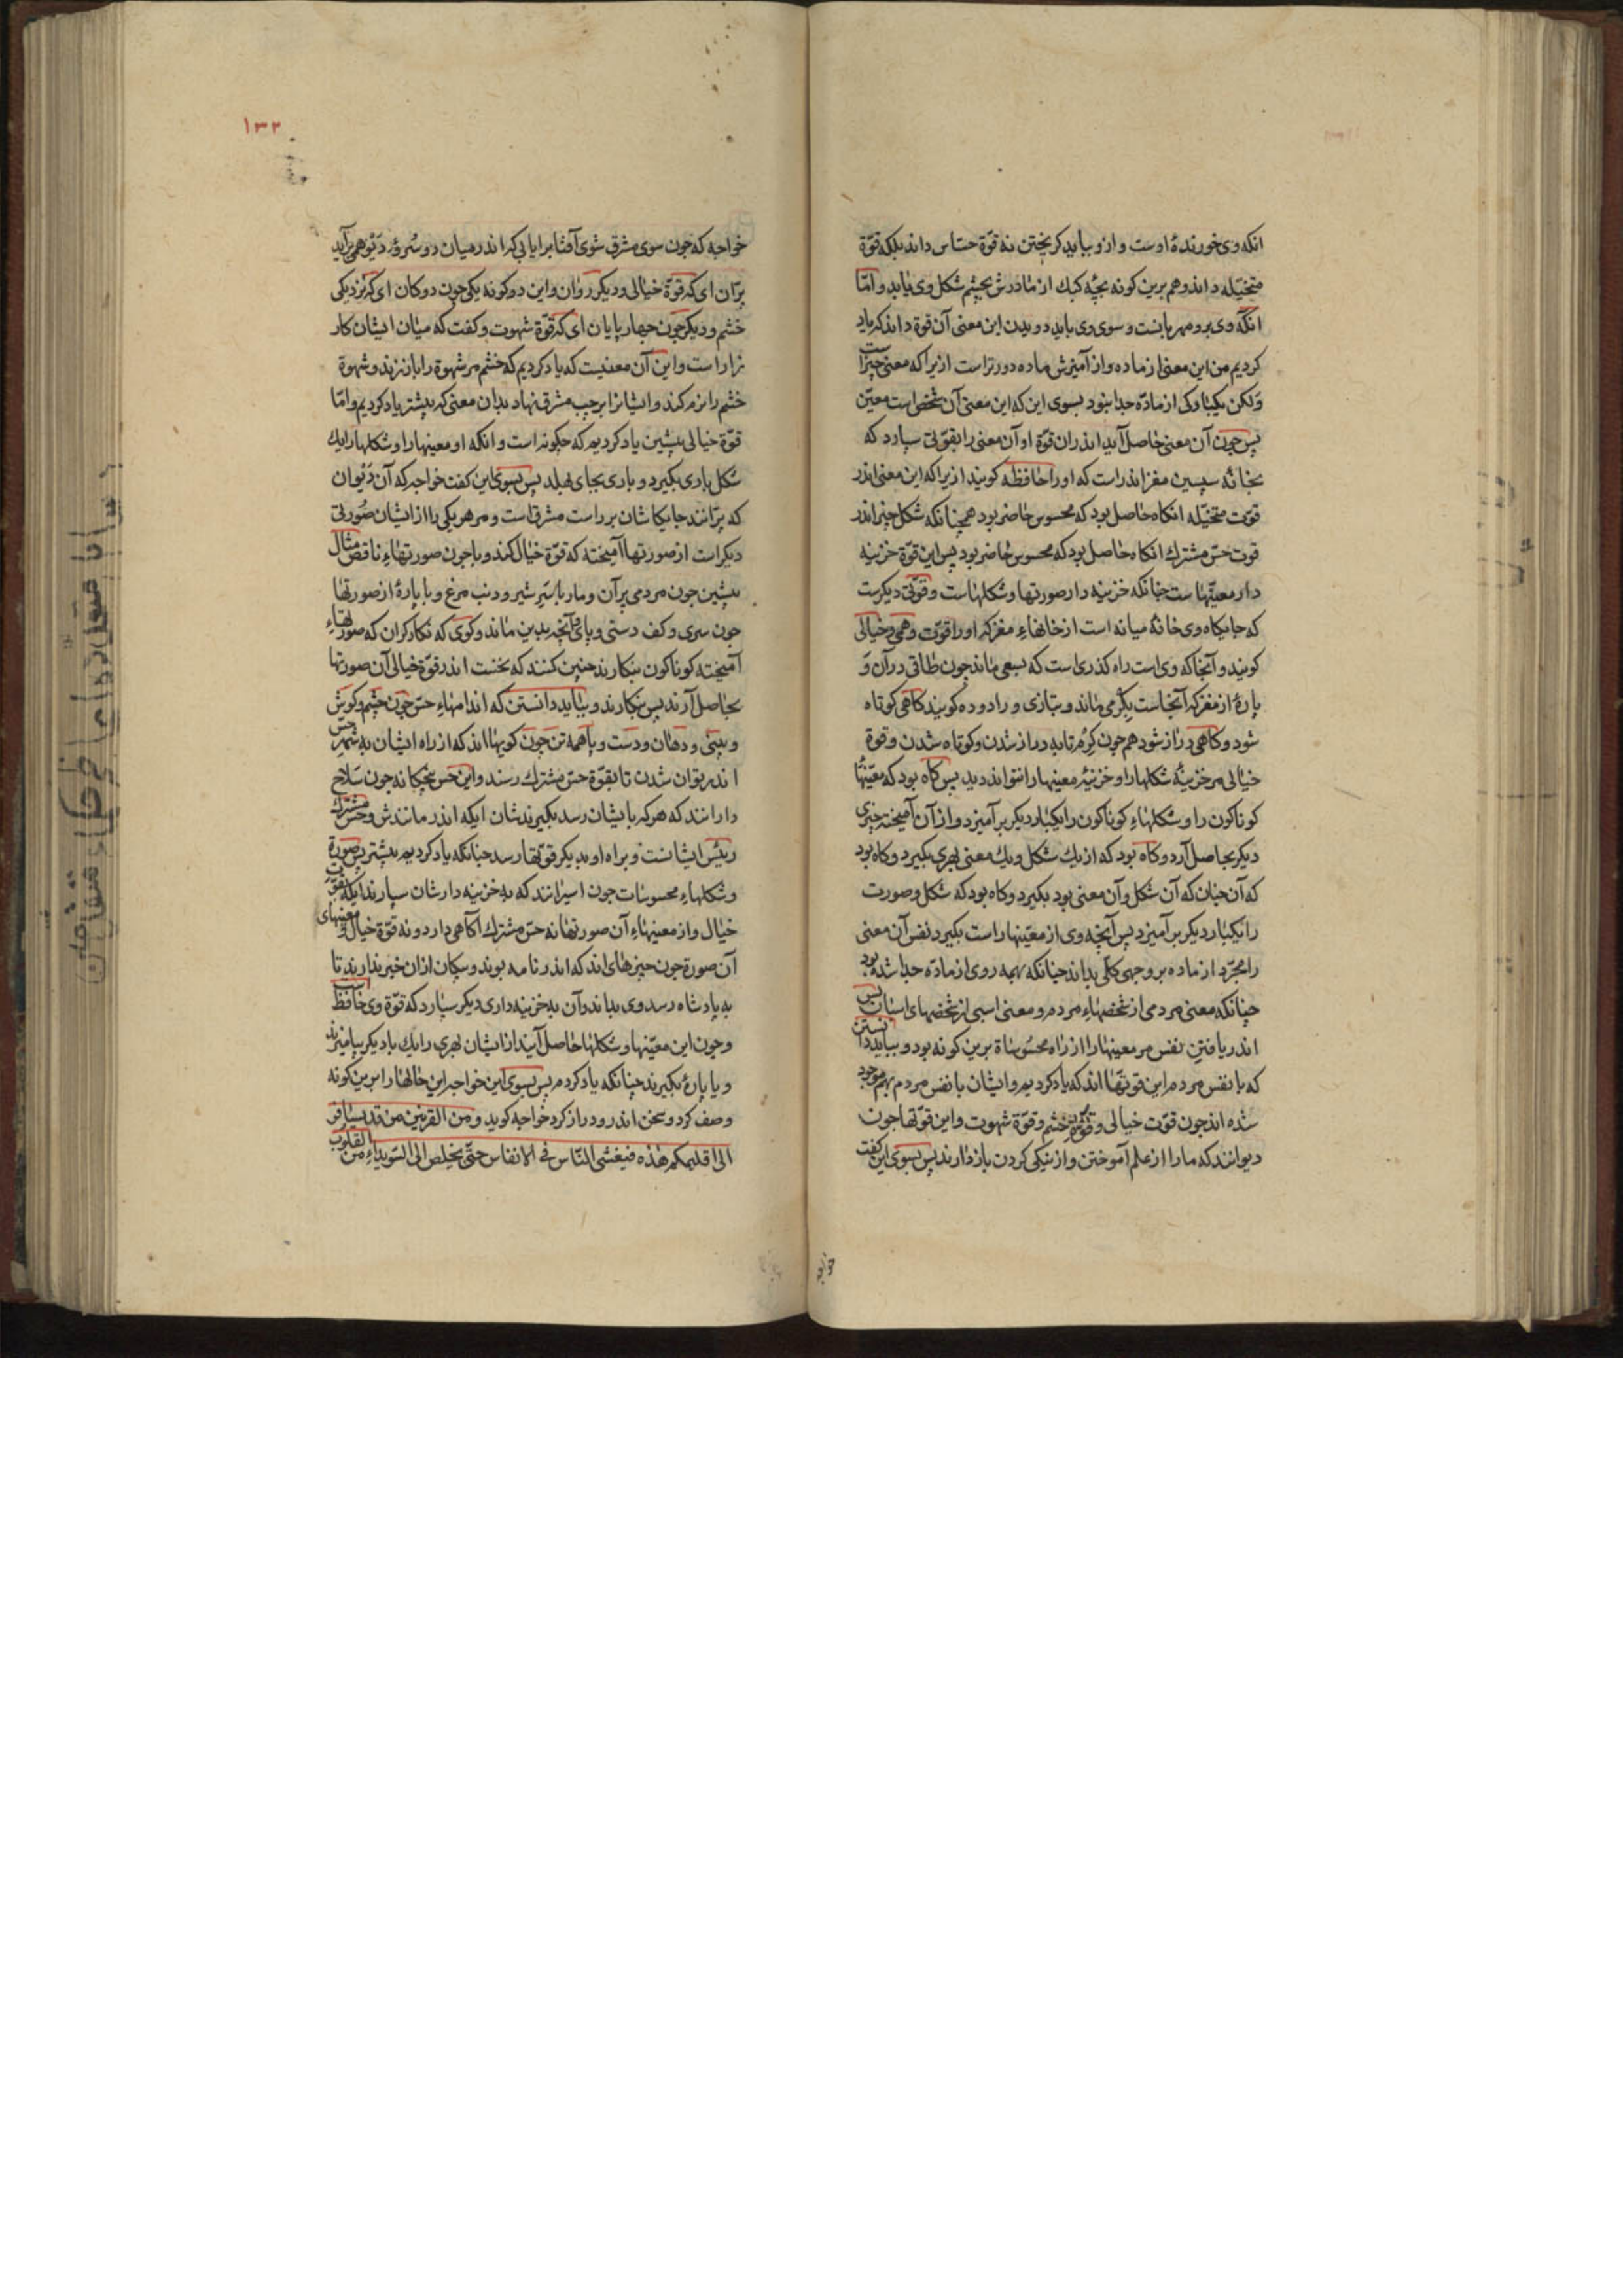 انکه وی خورندهٔ اوست و ازو بباید کریختن نه قوّة حسّاس داند بلکه قوّة
متخیّله داند و هم برین کونه بچّهٔ کبک از مادرش بچشم شکل وی یابد و امّا
انکه وی برو مهربانست و سوی وی باید دویدن این معنی آن قوة داند که یاد
کردیم من این معنی از ماده و از آمیزش ماده دورتر است ازیرا که معنی چیزاست
ولکن یکبارکی از مادّه جدا نبود بسوی این که این معنی آن شخص است معیّن
پس چون آن معنی حاصل آید اندران قوّة او آن معنی را بقوّتی سپارد که
بخانهٔ سپسین مغز اندر است که او را حافظه کویند ازیرا که این معنی اندر
قوّت متخیّله انکاه حاصل بود که محسوس حاضر بود همچنانکه شکل چیز اندر
قوت حسّ مشترك انکاه حاصل بود که محسوس حاضر بود پس این قوّة خزینه
دار معنیهاست چنانکه خزینه دار صورتها و شکلهاست و قوّتی دیکرست
که جایکاه وی خانهٔ میانه است از خانهاء مغز که او را قوّت وهمی و خیالی
کویند و آنجا که وی است راه کذری است که بسعی ماند چون طاقی در آن و
پارهٔ از مغز که آنجاست بکرمی ماند و بتازی ورا دوده کویند کاهی کوتاه
شود و کاهی دراز شود هم چون کرم تا به دراز شدن و کوتاه شدن وقوة
خیالی مر خزینهٔ شکلها را و خزینهٔ معنیها را نتواند دید پس کاه بود که معنیها
کوناکون را و شکلهاء کوناکون را یکبار دیکر بر آمیزد و از آن آمیخته چیزی
دیکر بحاصل آرد و کاه بود که از یك شکل و یك معنی لهری بکیرد و کاه بود
که آن چنان که آن شکل و آن معنی بود بکیرد و کاه بود که شکل و صورت
را یکبار دیکر بر آمیزد پس آنچه وی از معنیها راست بکیرد نفس آن معنی
را مجرّد از ماده بر وجهی کلّی بداند چنانکه بهمه روی از مادّه جدا شده بود
چنانکه معنی مردمی از شخصهاء مردم و معنی اسبی از شخصهای اسبان پس
اندر یافتن نفس مر معنیها را از راه محسوسات برین کونه بود و بباید دانستن
که با نفس مردم این قوتها اند که یاد کردیم و ایشان با نفس مردم بهم موجود
شده اند چون قوّت خیالی و قوّة خشم و قوّة شهوت و این قوّتها چون
دیوانند که ما را از علم آموختن و از نیکی کردن باز دارند پس بسوی این کفت
خواجه
١٣٢
خواجه که چون سوی مشرق شوی آفتاب برایابی که اندر میان دو سروهٔ دیو همی برآید
پرّان ای که قوّة خیالی و دیکر روان و این دو کونه یکی چون ددکان ای که نزدیکی
خشم و دیکر چون چهارپایان ای که قوّة شهوت و کفت که میان ایشان کار
زار است و این آن معنیست که یاد کردیم که خشم مر شهوة را باز زند و شهوة
خشم را نرم کند و ایشانرا برچپ مشرق نهاد بدان معنی که پیشتر یاد کردیم و امّا
قوّة خیالی پیشین یاد کردیم که چکونه است و انکه او معنیها را و شکلها را یك
شکل باری بکیرد و باری بجای بهلد پس بسوی این کفت خواجه که آن دیوان
که پرّانند جایکاشان بر راست مشرق است و مر هر یکی را از ایشان صورتی
دیکر است از صورتها آمیخته که قوّة خیال کند و با چون صورتهاء ناقص مثال
پیشین چون مردمی پرّان و مار با سر شیر و دنب مرغ و با پارهٔ از صورتها
چون سری و کف دستی و پای و آنچه بدین ماند و کوی که نکارکران که صورتهاء
آمیخته کوناکون بنکارند چنین کنند که نخست اندر قوّة خیالی آن صورتها
بحاصل آرند پس بنکارند و بباید دانستن که اندامهاء حسّ چون چشم و کوش
و بینی و دهان و دست و یا همه تن چون کویها اند که از راه ایشان به شهر حسّ
اندر توان شدن تا بقوّة حسّ مشترك رسند و این حس پنجکانه چون سلاح
دارانند که هر که بایشان رسد بکیرندشان ایکه اندر مانندش و حسّ مشترك
رئیس ایشانست و براه او بدیکر قوّتها رسد چنانکه یاد کردیم پیشتر پس صورة
و شکلهاء محسوسات چون اسیرانند که به خزینه دارشان سپارند ایکه بقوّت
خیال و از معنیهاء آن صورتها نه حسّ مشترك آکاهی دارد و نه قوّة خیال و معنیهای
آن صورة چون چیزهای اند که اندر نامه بوند و سکان ازان خبر ندارند تا
به پادشاه رسد وی بداند و آن به خزینه داری دیکر سپارد که قوّة وی حافظ است
و چون این معنیها و شکلها حاصل آیند از ایشان لهری را یك با دیکر بیامیزند
و یا پارهٔ بکیرند چنانکه یاد کردم پس بسوی این خواجه این حالها را برین کونه
وصف کرد و سخن اندرو دراز کرد خواجه کوید ومن القرنین من قد یسافر
الی اقلیمکم هذه فیغشی النّاس فی الانفاس حتّی یخلص الی السّویداء من القلوب